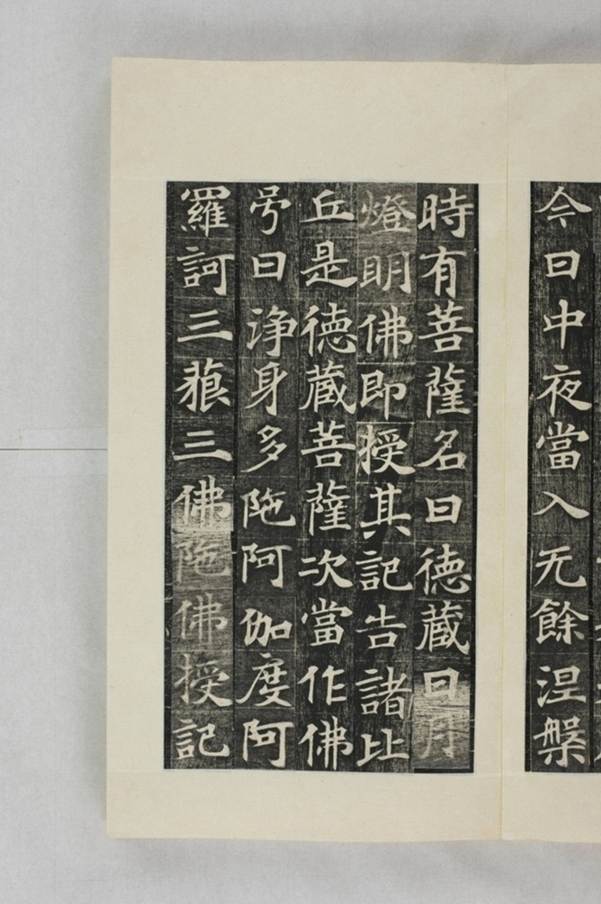 今日中夜當入无餘涅槃
時有菩薩名曰德藏日月
燈明佛即授其記告諸比
丘是德藏菩薩次當作佛
号曰浄身多陁阿伽度阿
羅訶三藐三佛陁佛授記